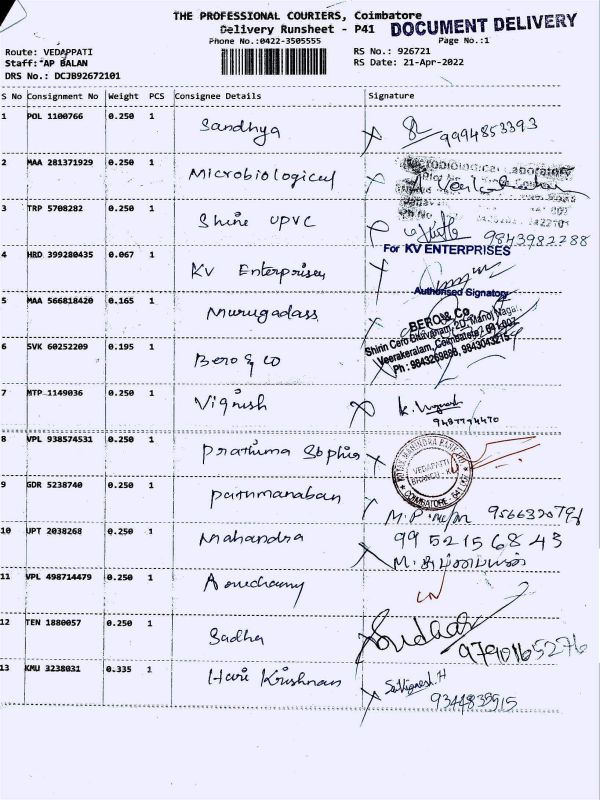 THE PROFESSIONAL COURIERS, Coimbatore
Delivery Runsheet - P41
DOCUMENT DELIVERY
Phone No.:0422-3505555
Page No.:1
Route: VEDAPPATI
RS No.: 926721
Staff: AP BALAN
RS Date: 21-Apr-2022
DRS No.: DCJB92672101
S No Consignment No Weight PCS Consignee Details Signature
1 POL 1100766 0.250 1 Sandhya 9994853393
2 MAA 281371929 0.250 1 Microbiological
3 TRP 5708282 0.250 1 Shine UPVC 9843982288
For KV ENTERPRISES
4 HRD 399280435 0.067 1 KV Enterprises
Authorised Signatory
5 MAA 566818420 0.165 1 Murugadass
BERO & Co
Shirin Cero Bhavanam, 2D, Manoj Nagar,
Veerakeralam, Coimbatore - 641 007
Ph : 9843269888, 9843043215
6 SVK 60252209 0.195 1 Bero & co
7 MTP 1149036 0.250 1 Vignesh K. Vignesh
9487794470
8 VPL 938574531 0.250 1 Prathima Sophia
KOTAK MAHINDRA BANK LTD
VEDAPPATI
BRANCH
COIMBATORE - 641 007
9 GDR 5238740 0.250 1 pathmanaban
10 UPT 2038268 0.250 1 Mahandra 9952156843
11 VPL 498714479 0.250 1
12 TEN 1880057 0.250 1 Sadha 9790165276
13 KMU 3238031 0.335 1 Hari Krishnan Sathignesh.H
9344835915